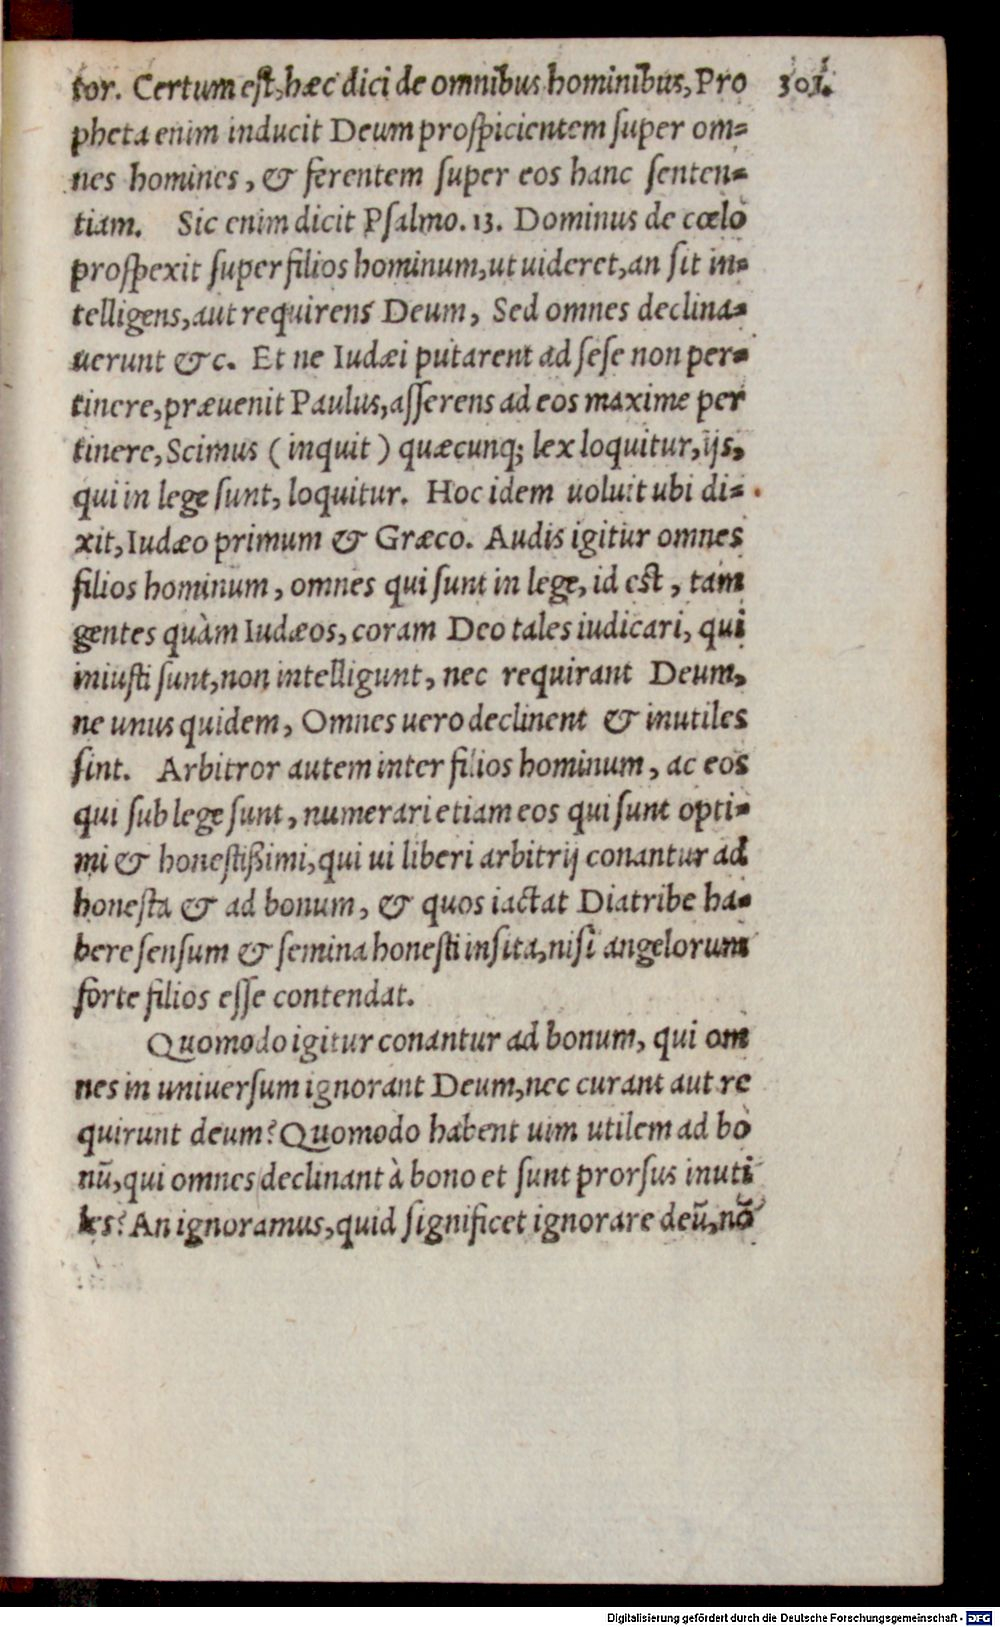 tor. Certum est, hæc dici de omnibus hominibus, Pro
301.
pheta enim inducit Deum prospicientem super om=
nes homines, & ferentem super eos hanc senten=
tiam. Sic enim dicit Psalmo. 13. Dominus de cœlo
prospexit super filios hominum, ut uideret, an sit in=
telligens, aut requirens Deum, Sed omnes declina=
uerunt &c. Et ne Iudæi putarent ad sese non per=
tinere, præuenit Paulus, asserens ad eos maxime per
tinere, Scimus (inquit) quæcunq; lex loquitur, ijs,
qui in lege sunt, loquitur. Hoc idem uoluit ubi di=
xit, Iudæo primum & Græco. Audis igitur omnes
filios hominum, omnes qui sunt in lege, id est, tam
gentes quàm Iudæos, coram Deo tales iudicari, qui
iniusti sunt, non intelligunt, nec requirant Deum,
ne unus quidem, Omnes uero declinent & inutiles
sint. Arbitror autem inter filios hominum, ac eos
qui sub lege sunt, numerari etiam eos qui sunt opti=
mi & honestißimi, qui ui liberi arbitrij conantur ad
honesta & ad bonum, & quos iactat Diatribe ha=
bere sensum & semina honesti insita, nisi angelorum
forte filios esse contendat.
Quomodo igitur conantur ad bonum, qui om
nes in uniuersum ignorant Deum, nec curant aut re
quirunt deum? Quomodo habent uim utilem ad bo
nũ, qui omnes declinant à bono et sunt prorsus inuti
les? An ignoramus, quid significet ignorare deũ, nõ
Digitalisierung gefördert durch die Deutsche Forschungsgemeinschaft - DFG